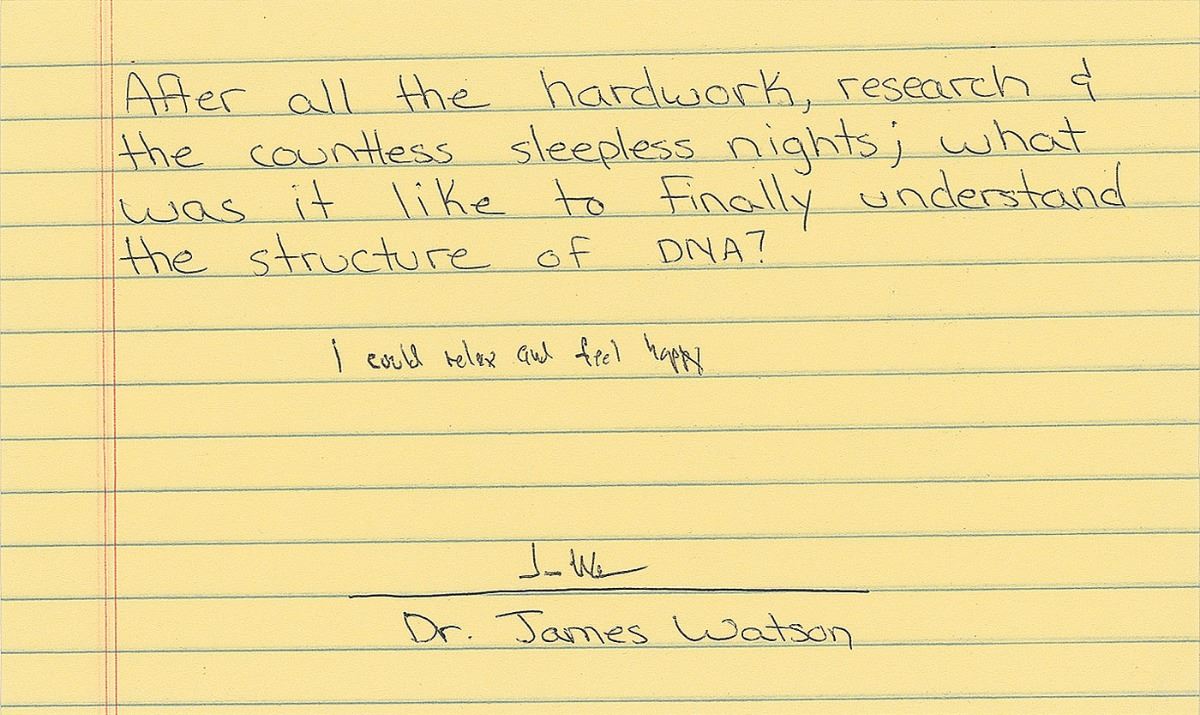 After all the hardwork, research &
the countless sleepless nights; what
was it like to finally understand
the structure of DNA?
I could relax and feel happy
Dr. James Watson